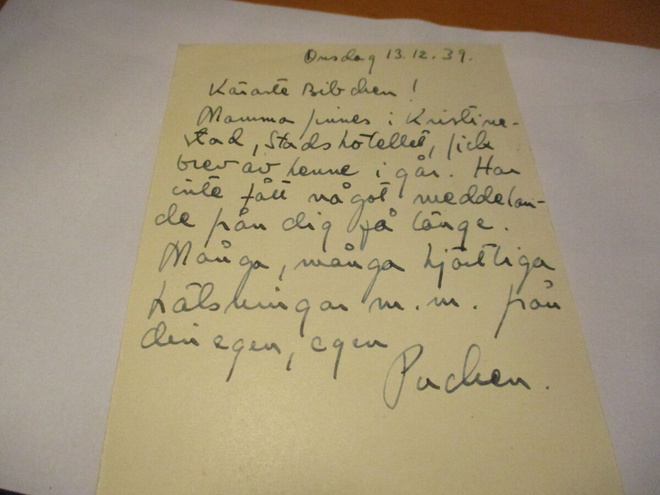 Onsdag 13.12.39.
Käraste Bibchen!
Mamma finnes i Kristine-
stad, Stadshotellet, fick
brev av henne i går. Har
inte fått något meddelan-
de från dig på länge.
Många, många hjärtliga
hälsningar m.m. från
din egen, egen
Puchen.